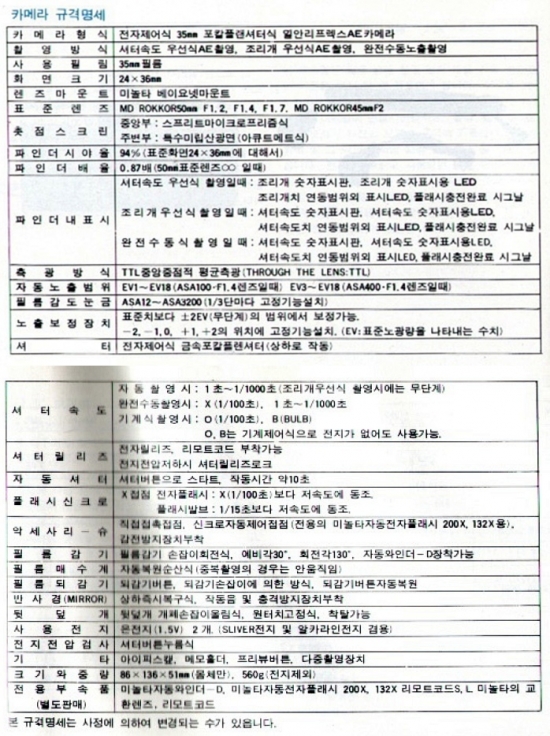 카메라 규격명세
카메라형식 전자제어식 35mm 포칼플랜셔터식 일안리프렉스AE카메라
촬영방식 셔터속도 우선식AE촬영, 조리개 우선식AE촬영, 완전수동노출촬영
사용필림 35mm필름
화면크기 24×36mm
렌즈마운트 미놀타 베이요넷마운트
표준렌즈 MD ROKKOR50mm F1.2, F1.4, F1.7. MD ROKKOR45mmF2
촛점스크린 중앙부 : 스프리트마이크로프리즘식
주변부 : 특수미립산광면(아큐트메트식)
파인더시야율 94%(표준화면24×36mm에 대해서)
파인더배율 0.87배(50mm표준렌즈○○ 일때)
파인더내표시 셔터속도 우선식 촬영일때 : 조리개 숫자표시판, 조리개 숫자표시용 LED
조리개치 연동범위외 표시LED, 플래시충전완료 시그날
조리개우선식촬영일때 : 셔터속도 숫자표시판, 셔터속도 숫자표시용LED,
셔터속도치 연동범위외 표시LED, 플래시충전완료 시그날
완전수동식촬영일때 : 셔터속도 숫자표시판, 셔터속도 숫자표시용LED,
셔터속도치 연동범위외 표시LED, 플래시충전완료 시그날
측광방식 TTL중앙중점적 평균측광(THROUGH THE LENS:TTL)
자동노출범위 EV1~EV18(ASA100·F1.4렌즈일때) EV3~EV18(ASA400·F1.4렌즈일때)
필름감도눈금 ASA12~ASA3200(1/3단마다 고정기능설치)
노출보정장치 표준치보다 ±2EV(무단계)의 범위에서 보정가능.
-2, -1, 0, +1, +2의 위치에 고정기능설치. (EV:표준노광량을 나타내는 수치)
셔터 전자제어식 금속포칼플랜셔터(상하로 작동)
셔터속도 자동촬영시 : 1초~1/1000초(조리개우선식 촬영시에는 무단계)
완전수동촬영시 : X(1/100초), 1초~1/1000초
기계식촬영시 : O(1/100초), B(BULB)
O, B는 기계제어식으로 전지가 없어도 사용가능.
셔터릴리즈 전자릴리즈, 리모트코드 부착가능
전지전압저하시 셔터릴리즈로크
자동셔터 셔터버튼으로 스타트, 작동시간 약10초
플래시신크로 X접점 전자플래시 : X(1/100초)보다 저속도에 동조.
플래시발브 : 1/15초보다 저속도에 동조.
악세사리-슈 직접접촉접점, 신크로자동제어접점(전용의 미놀타자동전자플래시 200X, 132X용),
감전방지장치부착
필름감기 필름감기 손잡이회전식, 예비각30°, 회전각130°, 자동와인더-D장착가능
필름매수계 자동복원순산식(중복촬영의 경우는 안움직임)
필름되감기 되감기버튼, 되감기손잡이에 의한 방식, 되감기버튼자동복원
반사경(MIRROR) 상하즉시복구식, 작동음 및 충격방지장치부착
뒷덮개 뒷덮개 개폐손잡이올림식, 원터치고정식, 착탈가능
사용전지 은전지(1.5V) 2개. (SLIVER전지 및 알카라인전지 겸용)
전지전압검사 셔터버튼누름식
기타 아이피스캪, 메모홀더, 프리뷰버튼, 다중촬영장치
크기와중량 86×136×51mm(몸체만), 560g(전지제외)
전용부속품 미놀타자동와인더-D, 미놀타자동전자플래시 200X, 132X 리모트코드S, L 미놀타의 교
(별도판매) 환렌즈, 리모트코드
본 규격명세는 사정에 의하여 변경되는 수가 있읍니다.